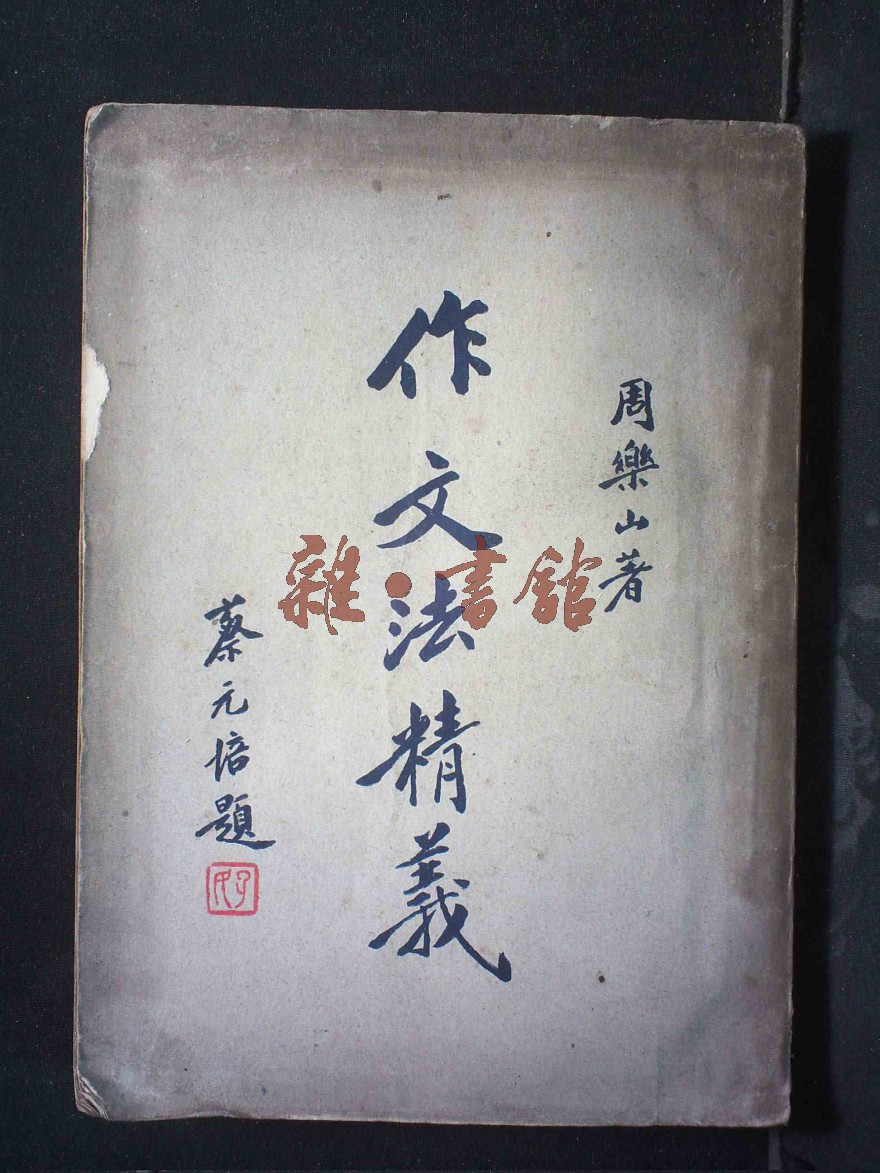 周樂山著
作文法精義
蔡元培題
雜·書館